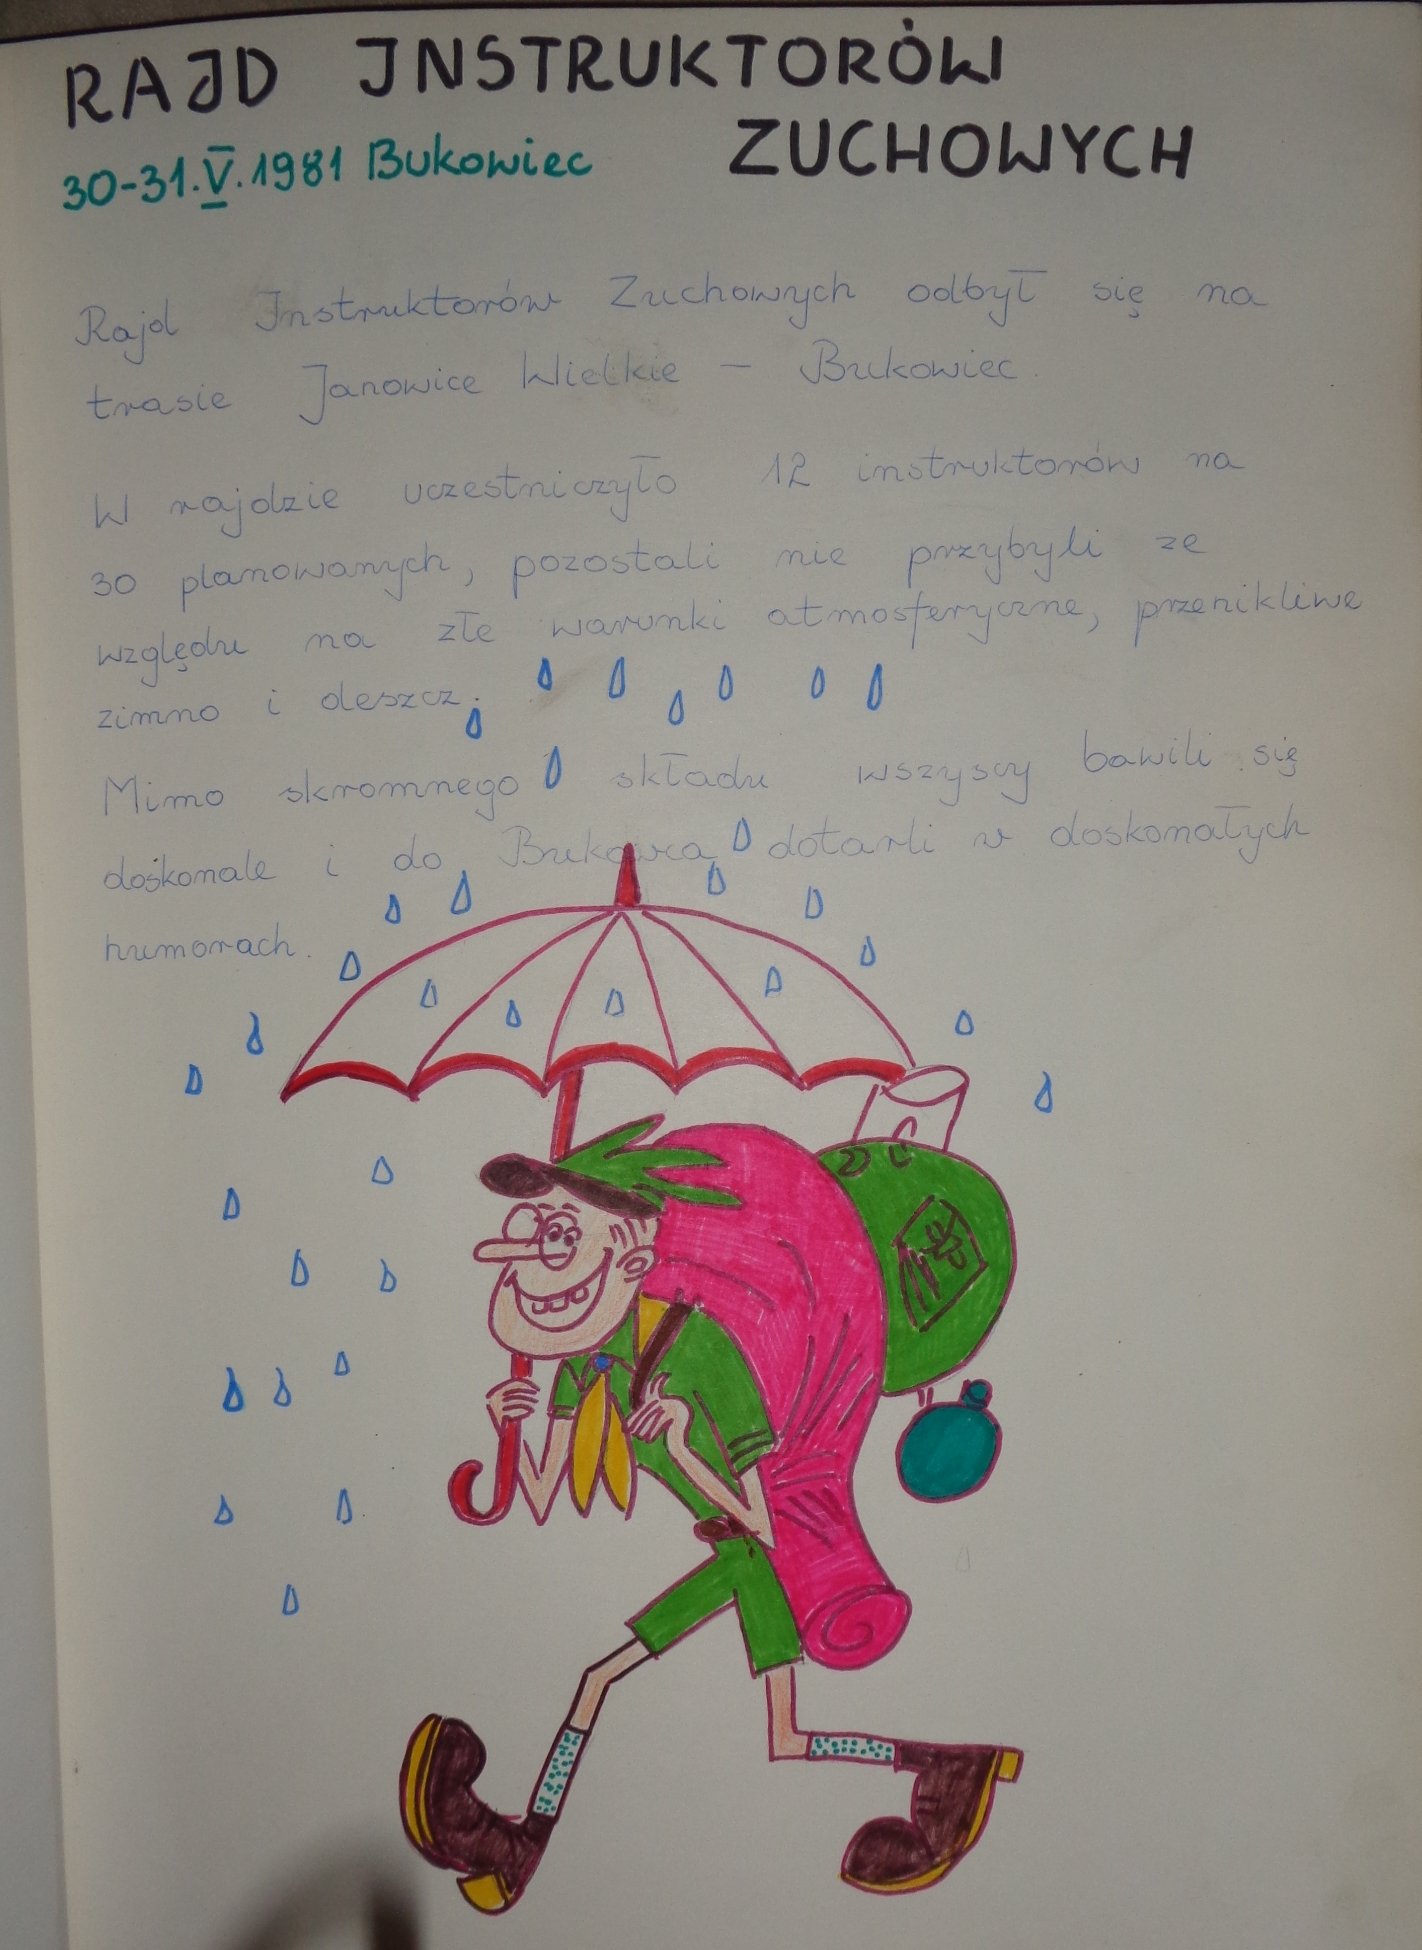 RAJD INSTRUKTORÓW
ZUCHOWYCH
30-31.V.1981 Bukowiec
Rajd Instruktorów Zuchowych odbył się na
trasie Janowice Wielkie – Bukowiec.
W rajdzie uczestniczyło 12 instruktorów na
30 planowanych, pozostali nie przybyli ze
względu na złe warunki atmosferyczne, przenikliwe
zimno i deszcz.
Mimo skromnego składu wszyscy bawili się
doskonale i do Bukowca dotarli w doskonałych
humorach.